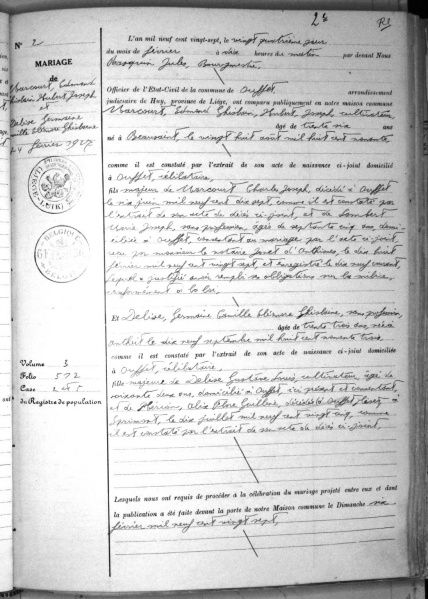 N° 2
MARIAGE
de
Marcourt, Edmond
Ghislain Hubert Joseph
et
Delise Germaine
Camille Elienne Ghislaine
24 février 1927
L'an mil neuf cent vingt-sept, le vingt quatrième jour
du mois de février à dix heures du matin par devant Nous
Jules, Bourgmestre
Officier de l'Etat-Civil de la commune de Ouffet arrondissement
judiciaire de Huy, province de Liége, ont comparu publiquement en notre maison commune
Marcourt, Edmond Ghislain, Hubert Joseph, cultivateur
âgé de trente six ans
né à Beausaint, le vingt huit août mil huit cent nonante
comme il est constaté par l'extrait de son acte de naissance ci-joint domicilié
à Ouffet, célibataire,
fils majeur de Marcourt Charles Joseph, décédé à Ouffet
le six juin mil neuf cent dix sept, comme il est constaté par
l'extrait de son acte de décès ci-joint, et de Lambert
Marie Joseph, sans profession, âgée de septante cinq ans, domi-
ciliée à Ouffet, consentant au mariage par l'acte ci-joint,
reçu par monsieur le notaire d'Anthisnes, le dix huit
février mil neuf cent vingt sept, et enregistré le dix neuf courant,
lequel a justifié avoir rempli ses obligations sur la milice,
conformément à la loi.
Et Delise, Germaine Camille Elienne Ghislaine, sans profession,
âgée de trente trois ans, née à
le dix neuf septembre mil huit cent nonante trois
comme il est constaté par l'extrait de son acte de naissance ci-joint domiciliée
à Ouffet, célibataire,
fille majeure de Delise Gustave Louis, cultivateur, âgé de
soixante deux ans, domicilié à Ouffet, ici présent et consentant,
et de
Sprimont, le dix juillet mil neuf cent vingt cinq, comme
il est constaté par l'extrait de son acte de décès ci-joint.
Volume 3
Folio 572
Case
du Registre de population
Lesquels nous ont requis de procéder à la célébration du mariage projeté entre eux et dont
la publication a été faite devant la porte de notre Maison commune le Dimanche six
février mil neuf cent vingt sept,